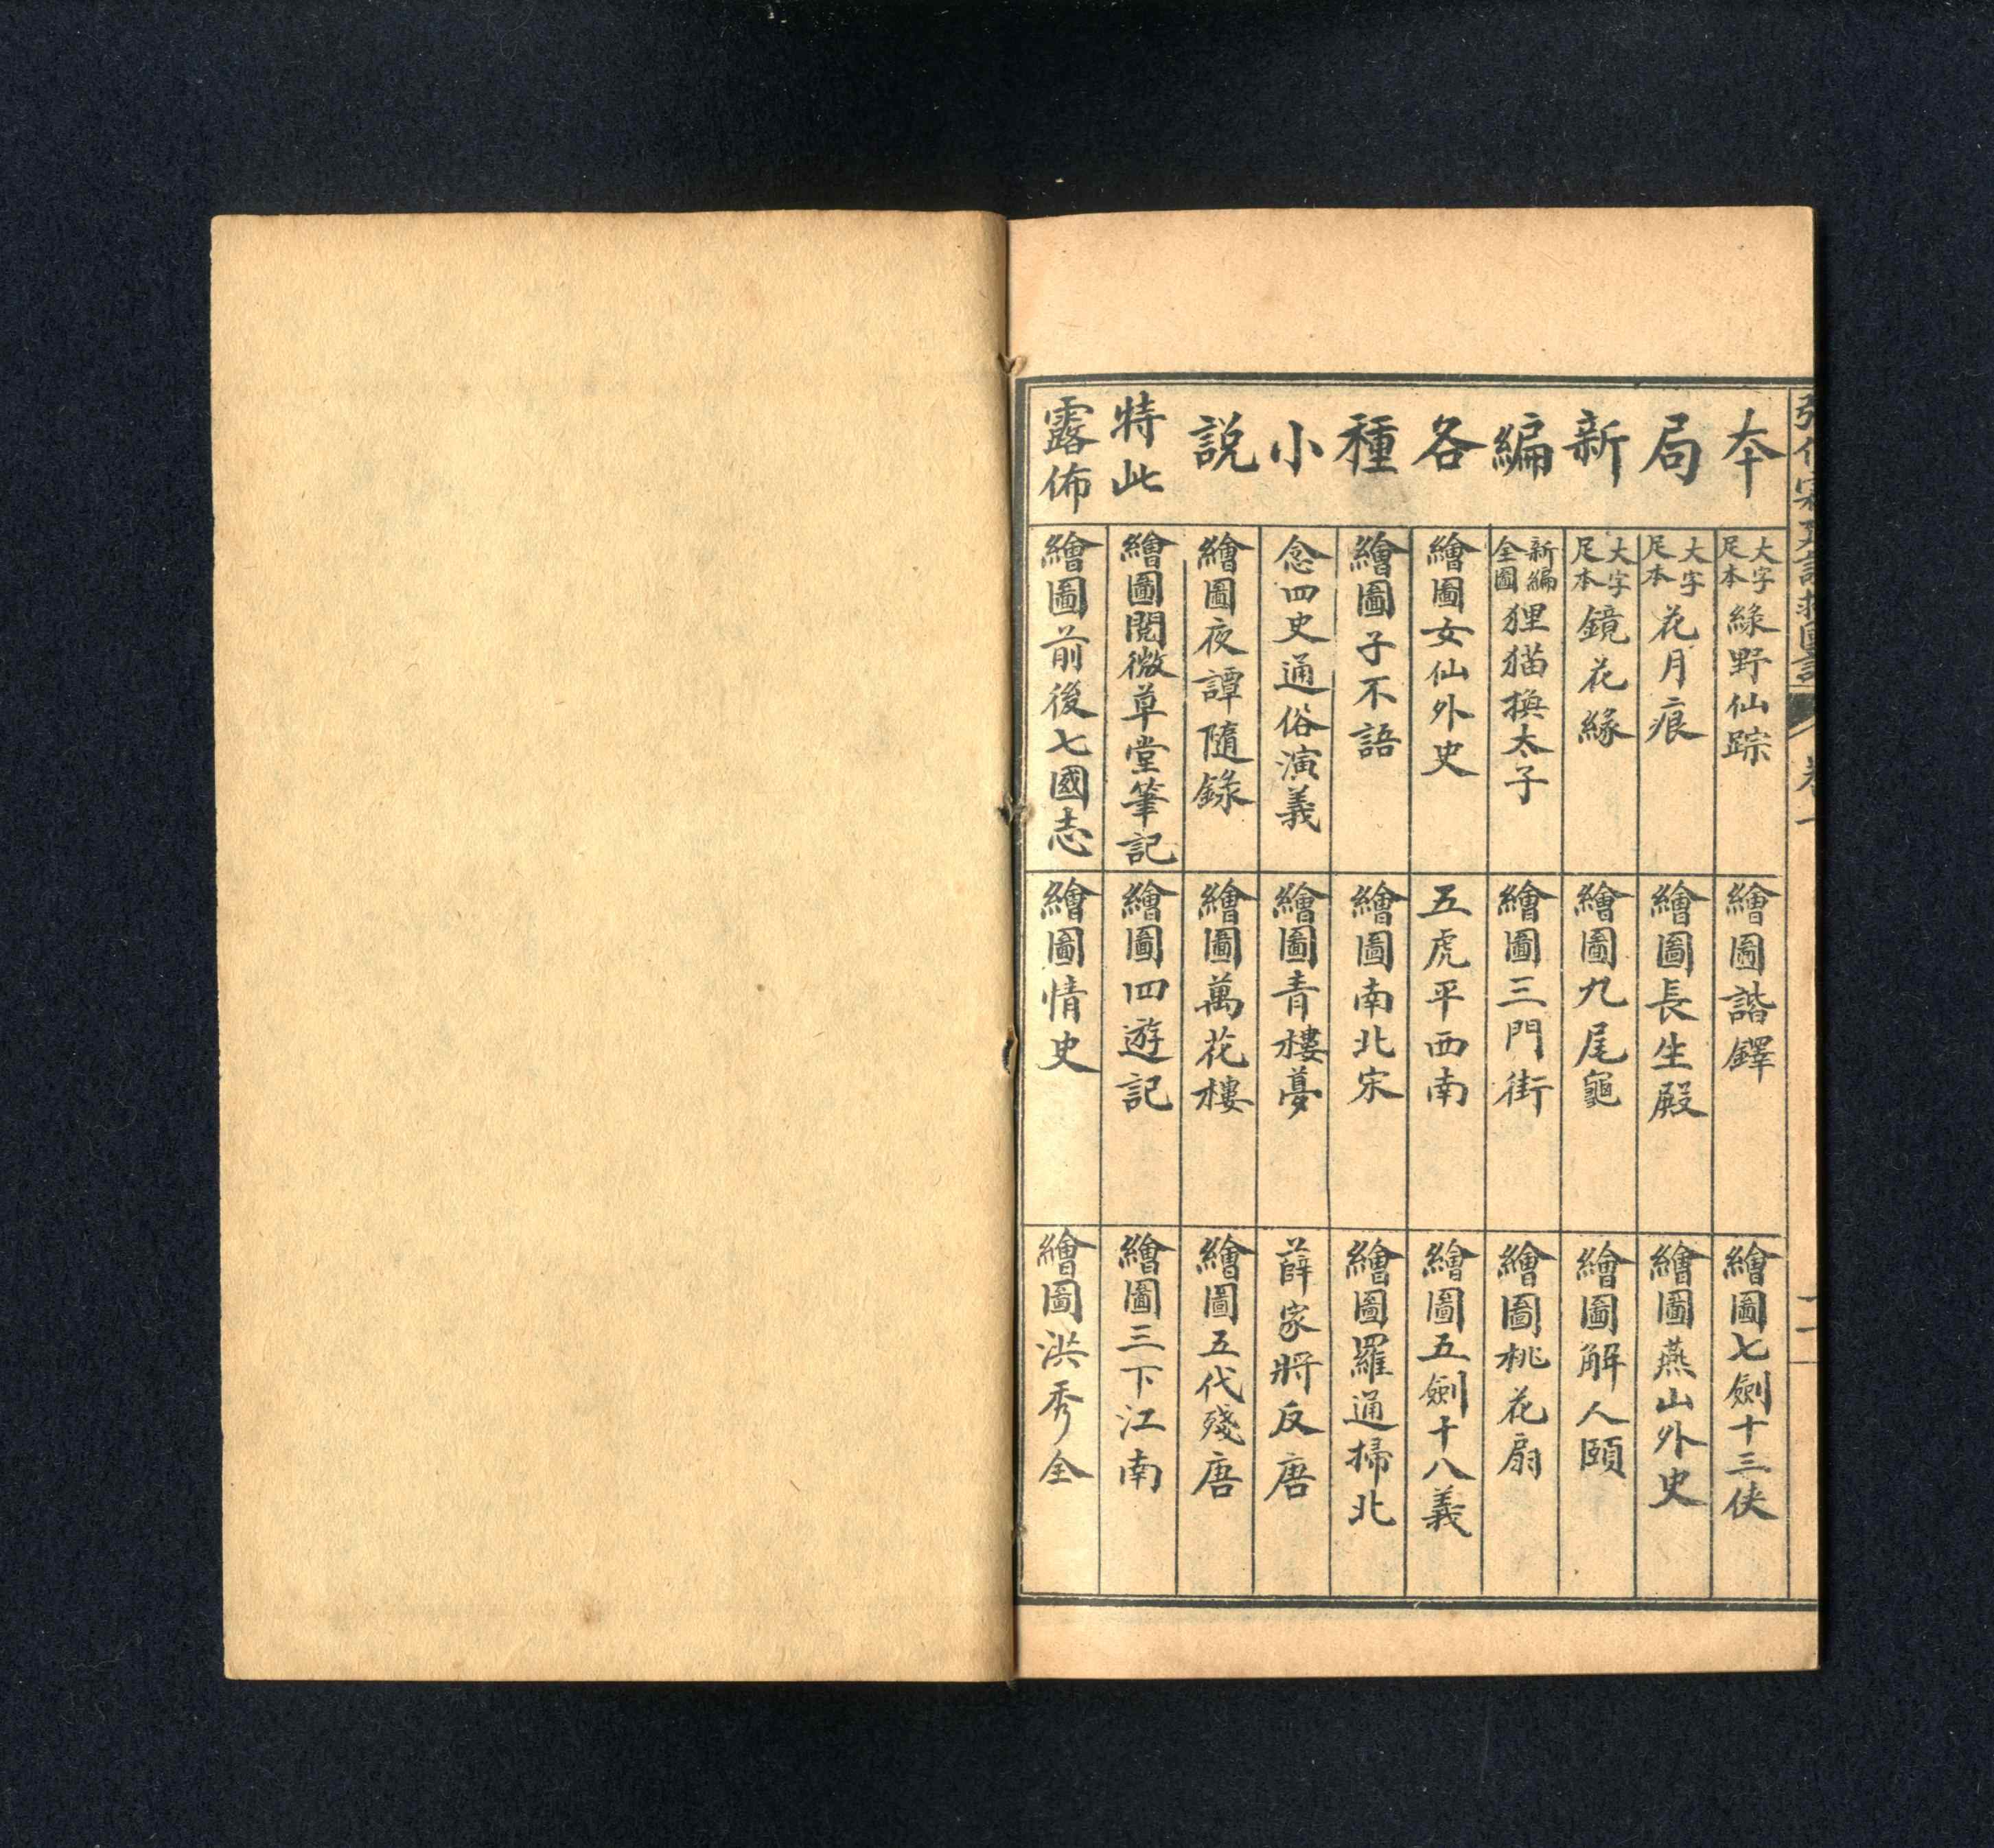 本局新編各種小說
特此
露佈
大字足本綠野仙踪
大字足本花月痕
大字足本鏡花緣
新編全圖狸猫換太子
繪圖女仙外史
繪圖子不語
念四史通俗演義
繪圖夜譚隨錄
繪圖閱微草堂筆記
繪圖前後七國志
繪圖諧鐸
繪圖長生殿
繪圖九尾龜
繪圖三門街
五虎平西南
繪圖南北宋
繪圖青樓夢
繪圖萬花樓
繪圖四遊記
繪圖情史
繪圖七劍十三俠
繪圖燕山外史
繪圖解人頤
繪圖桃花扇
繪圖五劍十八義
繪圖羅通掃北
薛家將反唐
繪圖五代殘唐
繪圖三下江南
繪圖洪秀全